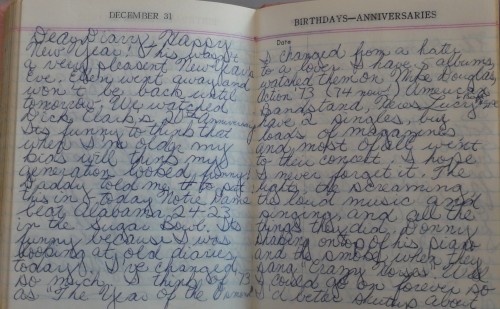 DECEMBER 31
Dear Diary, Happy
New Year! This wasn't
a very pleasent New Year's
Eve. Eileen went away and
won't be back until
tomorrow. We watched
Dick Clark's 20th Anniversary
Its funny to think that
when I'm older my
kids will think my
generation looked funny!
Daddy told me to put
this in; today Notre Dame
beat Alabama, 24-23
in the Sugar Bowl. It's
funny because I was
looking at old diaries
today & I've changed
so much. I think of '73
as "The Year of the Osmonds"
BIRTHDAYS—ANNIVERSARIES
Date
I changed from a hater
to a lover. I have albums,
watched them on Mike Douglas,
Action '73 (74 now) American
Bandstand, Here's Lucy
have 2 singles, buy
loads of magazines
and most of all went
to their concert. I hope
I never forget it. The
lights, the screaming
the loud music and
singing, and all the
things they did, Donny
shaking on top of his piano
and the smoke when they
sang "Crazy Horses". Well
I could go on forever so
I'd better shutup about